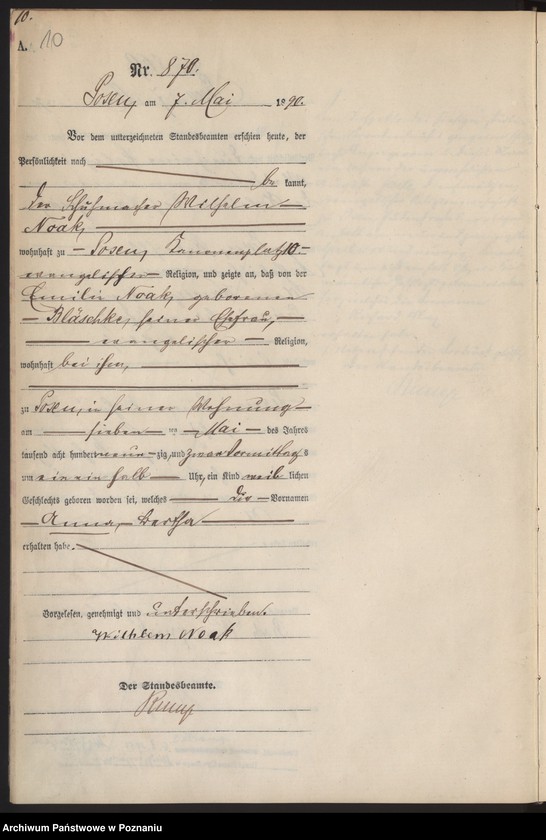 10.
A. 10
Nr. 870.
Posen, am 7. Mai 1890.
Vor dem unterzeichneten Standesbeamten erschien heute, der
Persönlichkeit nach
be kannt,
der Schuhmacher Wilhelm
Noak,
wohnhaft zu Posen, Kanonenplatz 10.
evangelischer Religion, und zeigte an, daß von der
Emilie Noak, geborenen
Bläschke, seiner Ehefrau,
evangelischer Religion,
wohnhaft bei ihm,
zu Posen, in seiner Wohnung
am sieben ten Mai des Jahres
tausend acht hundert neun zig, und zwar Vormittags
um ein ein halb Uhr, ein Kind weib lichen
Geschlechts geboren worden sei, welches die Vornamen
Anna, Bertha
erhalten habe.
Vorgelesen, genehmigt und unterschrieben.
Wilhelm Noak
Der Standesbeamte.
Archiwum Państwowe w Poznaniu